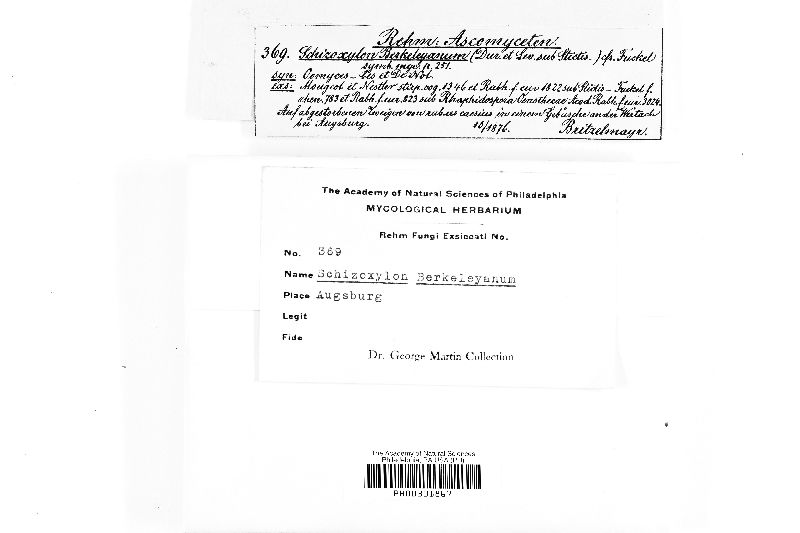 Rehm: Ascomyceten.
369. Schizoxylon Berkeleyanum (Dur. et Lev. sub Stictis.) cfr. Fuckel
symb. myc. p. 251.
syn: Oomyces – Ces et De Not.
exs: Mougeot et Nestler stirp. vog. 1346 et Rabh. f. eur. 1822 sub Stictis – Fuckel f.
rhen. 783 et Rabh. f. eur. 823 sub Rhaphidospora Rabh. f. eur. 3024.
Auf abgestorbenen Zweigen von rubus caesius in einem Gebüsche an der Wertach
bei Augsburg. 10/1876. Britzelmayr.
The Academy of Natural Sciences of Philadelphia
MYCOLOGICAL HERBARIUM
Rehm Fungi Exsiccati No.
No. 369
Name Schizoxylon Berkeleyanum
Place Augsburg
Legit
Fide
Dr. George Martin Collection
The Academy of Natural Sciences
Philadelphia, PA USA (PH)